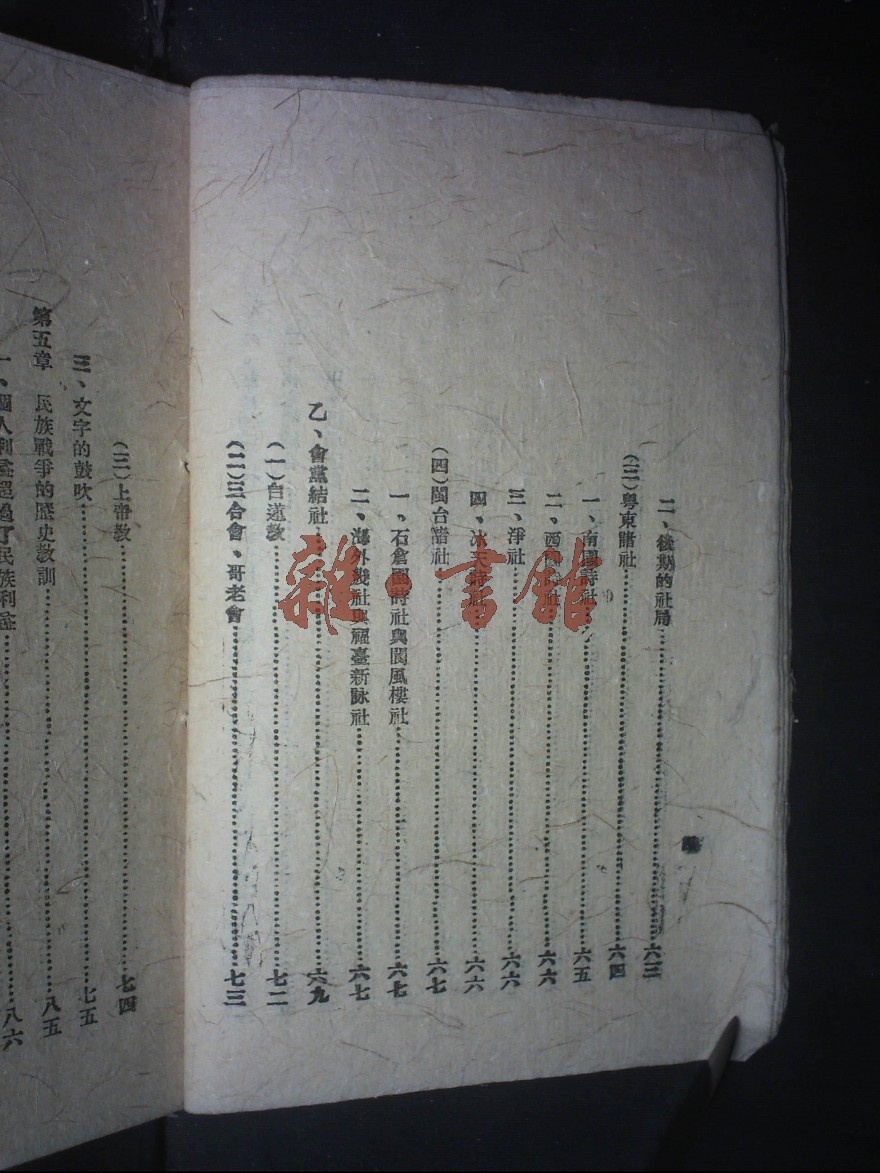 二、後期的社局……六三
(三)粵東諸社……六四
一、南園詩社……六五
二、西園詩社……六六
三、淨社……六六
四、冰天詩社……六六
(四)閩台諸社……六七
一、石倉園詩社與閬風樓社……六七
二、海外幾社與福臺新詠社……六七
乙、會黨結社……六九
(一)白蓮教……七二
(二)三合會、哥老會……七三
(三)上帝教……七四
三、文字的鼓吹……七五
第五章 民族戰爭的歷史教訓……八五
一、個人利益超過了民族利益……八六
雜·書館